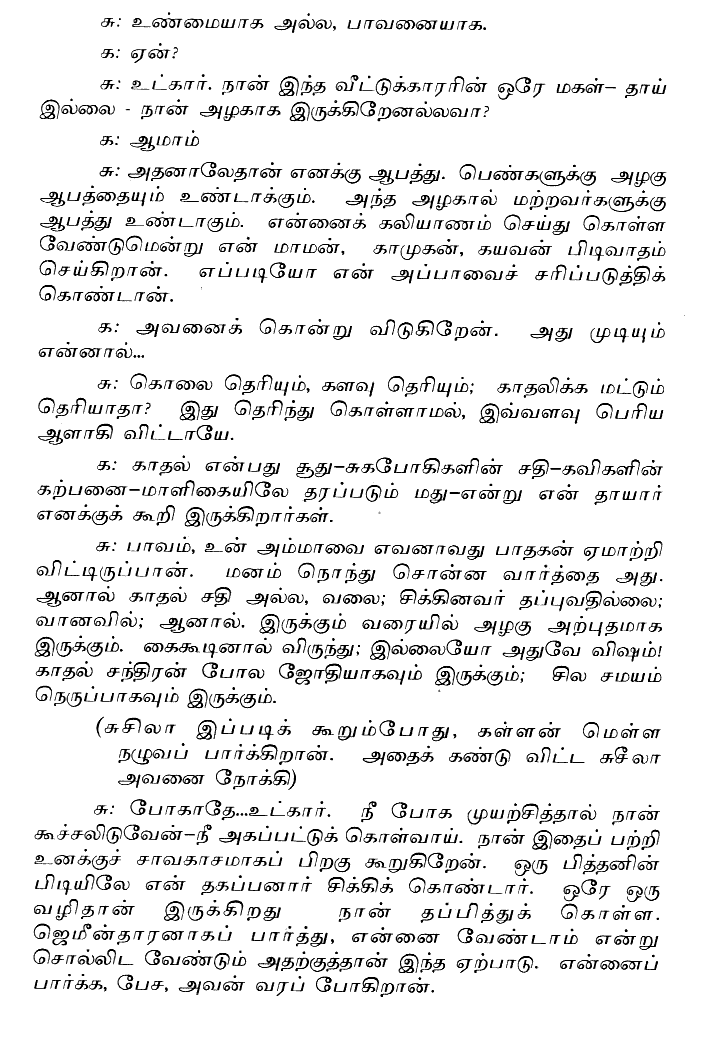 சு: உண்மையாக அல்ல, பாவனையாக.
க: ஏன்?
சு: உட்கார். நான் இந்த வீட்டுக்காரரின் ஒரே மகள்– தாய்
இல்லை - நான் அழகாக இருக்கிறேனல்லவா?
க: ஆமாம்
சு: அதனாலேதான் எனக்கு ஆபத்து. பெண்களுக்கு அழகு
ஆபத்தையும் உண்டாக்கும். அந்த அழகால் மற்றவர்களுக்கு
ஆபத்து உண்டாகும். என்னைக் கலியாணம் செய்து கொள்ள
வேண்டுமென்று என் மாமன், காமுகன், கயவன் பிடிவாதம்
செய்கிறான். எப்படியோ என் அப்பாவைச் சரிப்படுத்திக்
கொண்டான்.
க: அவனைக் கொன்று விடுகிறேன். அது முடியும்
என்னால்...
சு: கொலை தெரியும், களவு தெரியும்; காதலிக்க மட்டும்
தெரியாதா? இது தெரிந்து கொள்ளாமல், இவ்வளவு பெரிய
ஆளாகி விட்டாயே.
க: காதல் என்பது சூது–சுகபோகிகளின் சதி–கவிகளின்
கற்பனை–மாளிகையிலே தரப்படும் மது–என்று என் தாயார்
எனக்குக் கூறி இருக்கிறார்கள்.
சு: பாவம், உன் அம்மாவை எவனாவது பாதகன் ஏமாற்றி
விட்டிருப்பான். மனம் நொந்து சொன்ன வார்த்தை அது.
ஆனால் காதல் சதி அல்ல, வலை; சிக்கினவர் தப்புவதில்லை;
வானவில்; ஆனால். இருக்கும் வரையில் அழகு அற்புதமாக
இருக்கும். கைகூடினால் விருந்து; இல்லையோ அதுவே விஷம்!
காதல் சந்திரன் போல ஜோதியாகவும் இருக்கும்; சில சமயம்
நெருப்பாகவும் இருக்கும்.
(சுசிலா இப்படிக் கூறும்போது, கள்ளன் மெள்ள
நழுவப் பார்க்கிறான். அதைக் கண்டு விட்ட சுசீலா
அவனை நோக்கி)
சு: போகாதே...உட்கார். நீ போக முயற்சித்தால் நான்
கூச்சலிடுவேன்–நீ அகப்பட்டுக் கொள்வாய். நான் இதைப் பற்றி
உனக்குச் சாவகாசமாகப் பிறகு கூறுகிறேன். ஒரு பித்தனின்
பிடியிலே என் தகப்பனார் சிக்கிக் கொண்டார். ஒரே ஒரு
வழிதான் இருக்கிறது நான் தப்பித்துக் கொள்ள.
ஜெமீன்தாரனாகப் பார்த்து, என்னை வேண்டாம் என்று
சொல்லிட வேண்டும் அதற்குத்தான் இந்த ஏற்பாடு. என்னைப்
பார்க்க, பேச, அவன் வரப் போகிறான்.